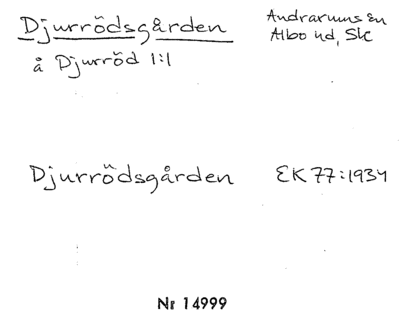 Djurrödsgården
Andrarums sn
å Djurröd 1:1
Albo hd, Sk
Djurrödsgården
EK 77:1934
Nr 14999